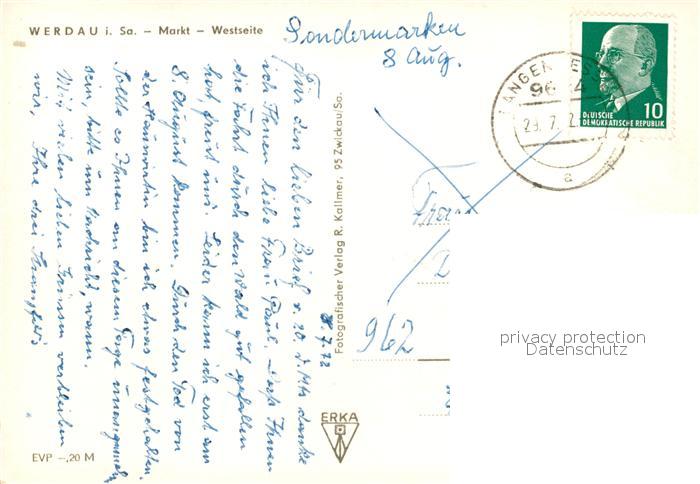 WERDAU i. Sa. – Markt – Westseite
Sondermarken
8 Aug.
LANGEN
96 4
29.7.
a
10
DEUTSCHE
DEMOKRATISCHE REPUBLIK
7.72
Für den lieben Brief v. 20. d. Mts danke
ich Ihnen liebe Frau Paul. Dass Ihnen
die Fahrt durch den Wald gut gefallen
hat, freut mich. Leider kann ich erst am
8 August kommen. Durch den Tod von
der Hauswartin bin ich etwas festgehalten.
Sollte es Ihnen an diesem Tage
sein, bitte um Nachricht, wann.
Mit vielen lieben Grüssen verbleiben
wir, Ihre drei
Fotografischer Verlag R. Kallmer, 95 Zwickau/Sa.
Frau
962
privacy protection
Datenschutz
ERKA
EVP –,20 M